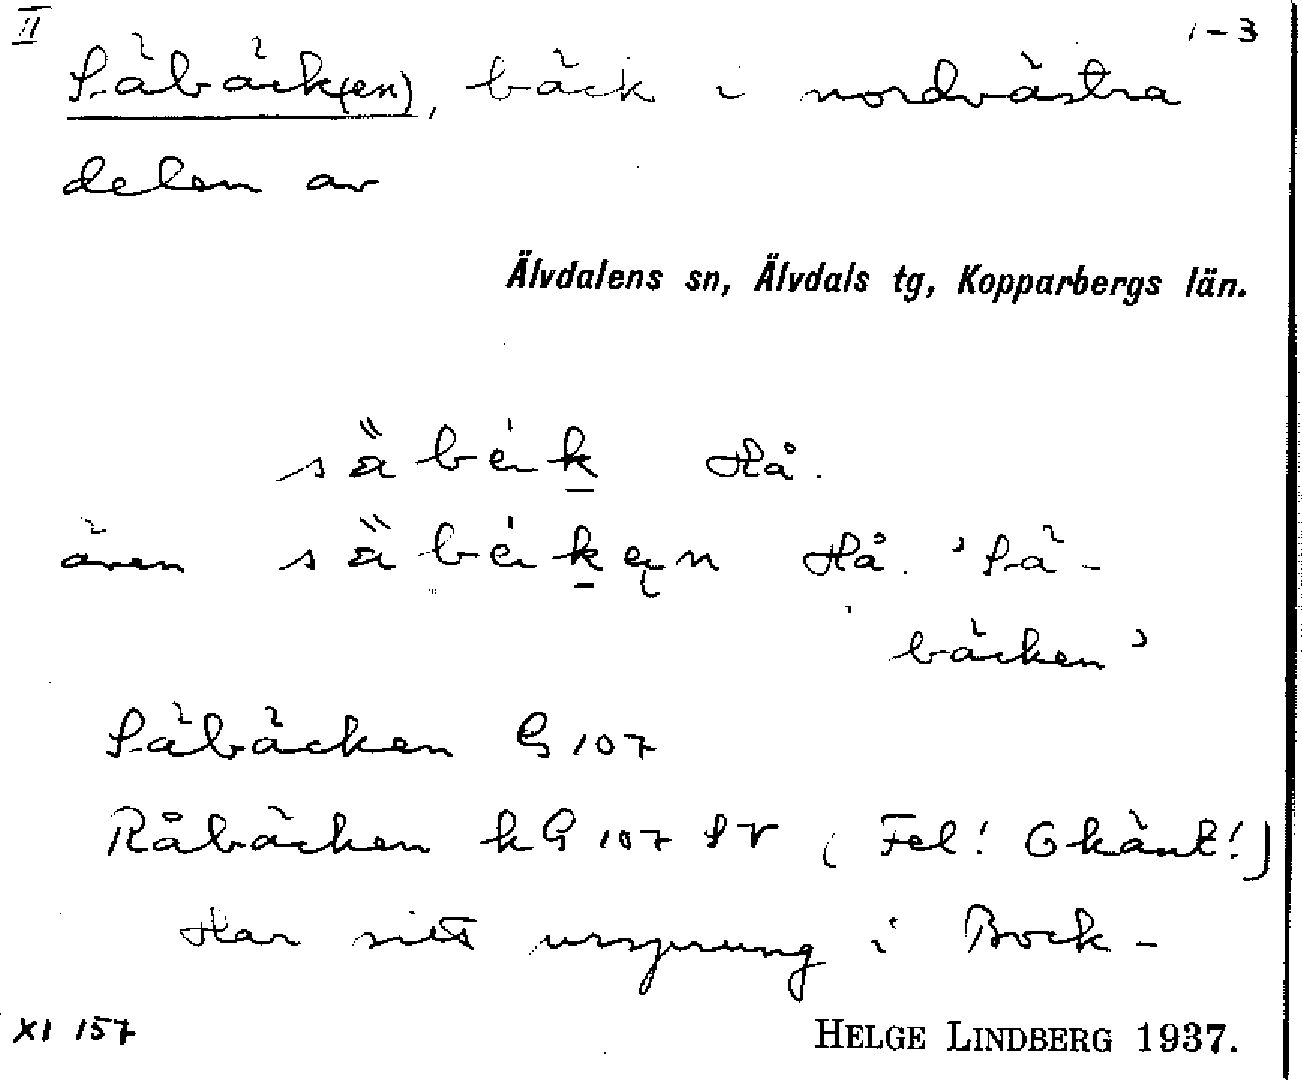 II 1-3
Säbäck(en), bäck i nordvästra
delen av
Älvdalens sn, Älvdals tg, Kopparbergs län.
Hå.
även Hå. 'Sä-
bäcken'
Säbäcken G 107
Råbäcken kG 107 SV (Fel! Okänt!)
Har sitt ursprung i Bock-
XI 157 HELGE LINDBERG 1937.